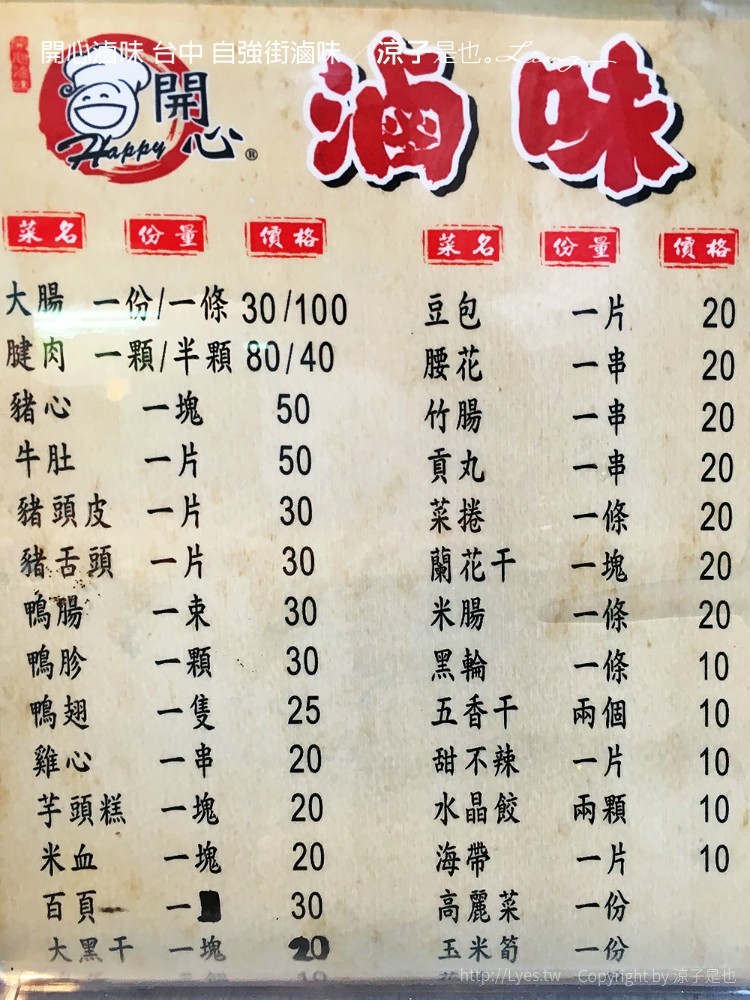 開心滷味 台中 自強街滷味 / 涼子是也。
開心
Happy®
滷味
菜名 份量 價格
大腸 一份/一條 30/100
腱肉 一顆/半顆 80/40
豬心 一塊 50
牛肚 一片 50
豬頭皮 一片 30
豬舌頭 一片 30
鴨腸 一束 30
鴨胗 一顆 30
鴨翅 一隻 25
雞心 一串 20
芋頭糕 一塊 20
米血 一塊 20
百頁 一 30
大黑干 一塊 20
菜名 份量 價格
豆包 一片 20
腰花 一串 20
竹腸 一串 20
貢丸 一串 20
菜捲 一條 20
蘭花干 一塊 20
米腸 一條 20
黑輪 一條 10
五香干 兩個 10
甜不辣 一片 10
水晶餃 兩顆 10
海帶 一片 10
高麗菜 一份
玉米筍 一份
http://Lyes.tw Copyright by 涼子是也